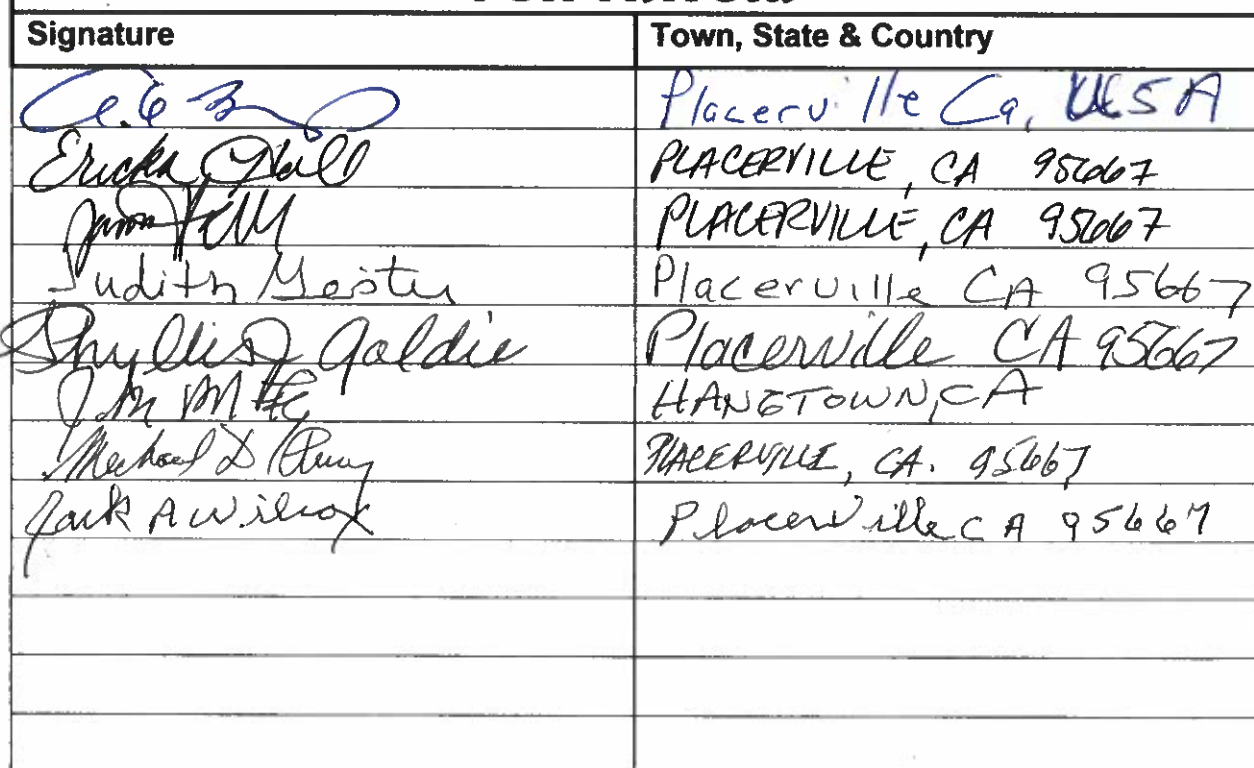 Signature Town, State & Country
Placerville Ca, USA
Ericka PLACERVILLE, CA 95667
Jason PLACERVILLE, CA 95667
Judith Placerville CA 95667
Phyllis J Goldie Placerville CA 95667
Jim HANGTOWN, CA
Michael D PLACERVILLE, CA. 95667
Jack A Wilcox Placerville CA 95667